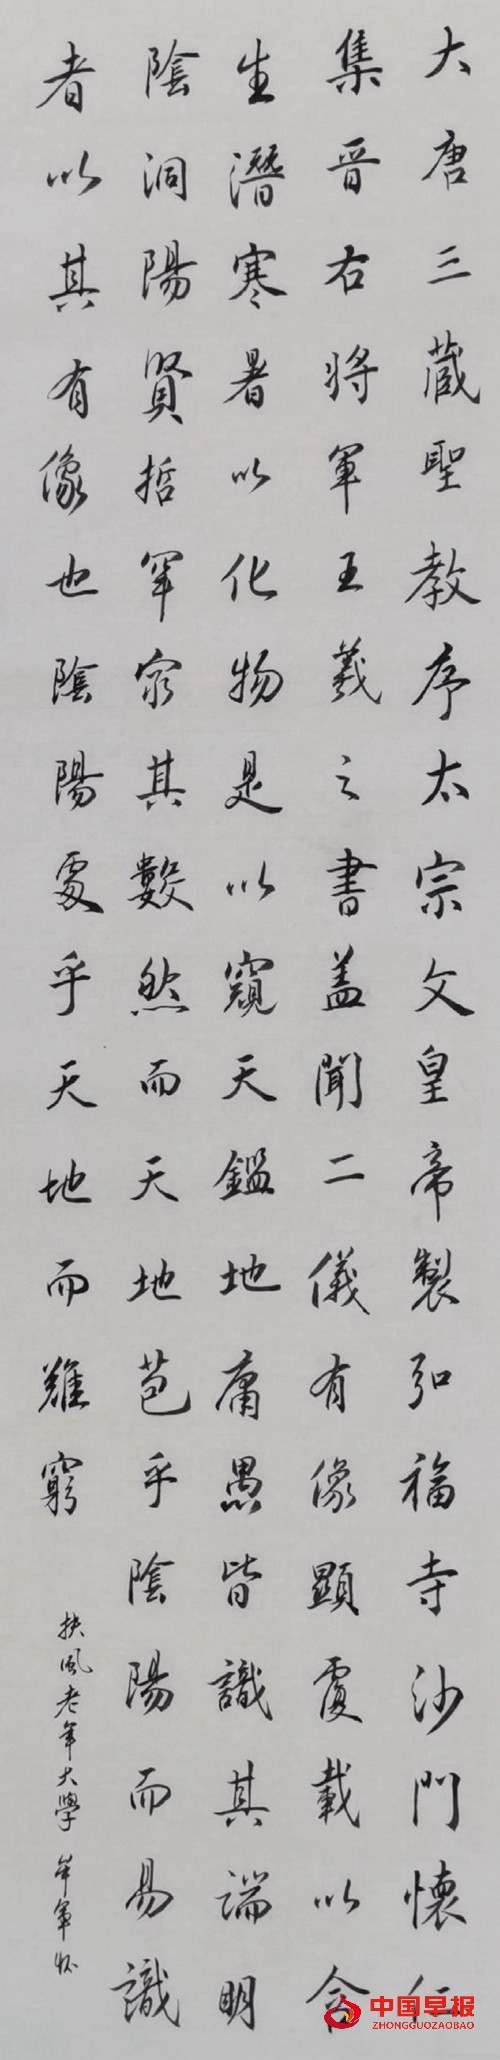 大唐三藏聖教序太宗文皇帝製弘福寺沙門懷仁
集晋右將軍王羲之書蓋聞二儀有像顯覆載以含
生潛寒暑以化物是以窺天鑑地庸愚皆識其端明
陰洞陽賢哲罕窮其數然而天地苞乎陰陽而易識
者以其有像也陰陽處乎天地而難窮
扶風老年大學 軍
中国早报
ZHONGGUOZAOBAO